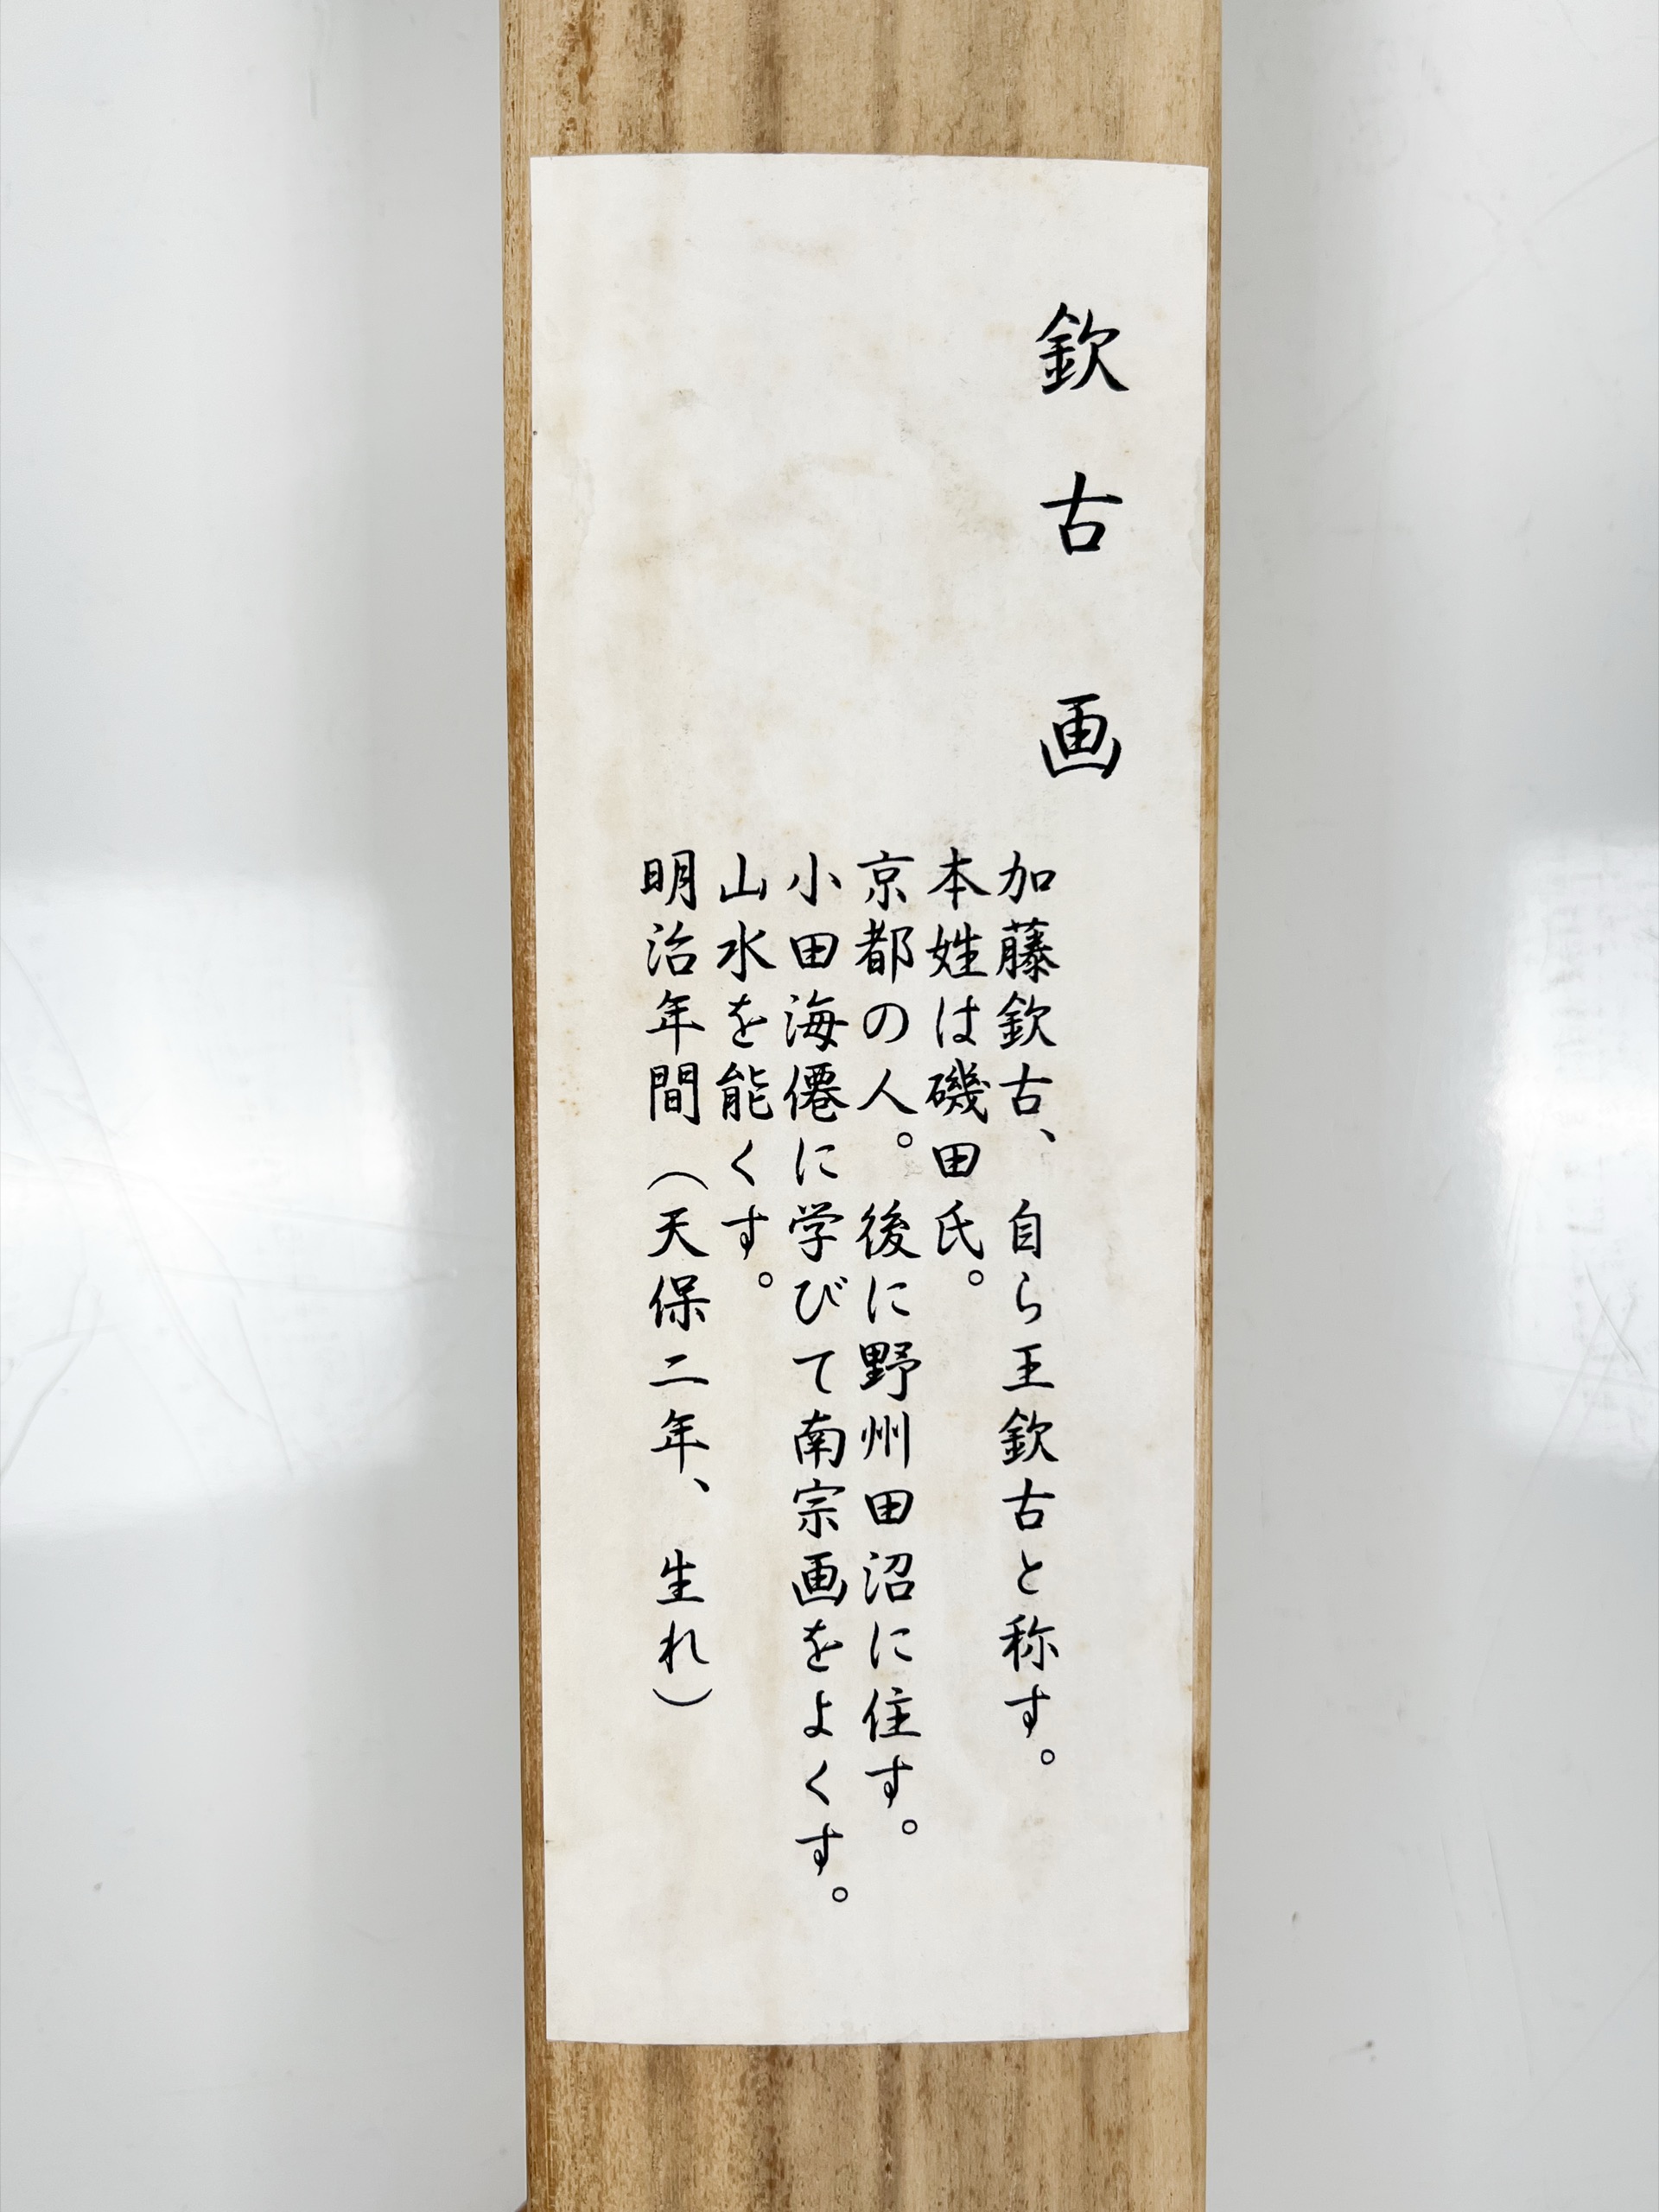 欽古画
加藤欽古、自ら王欽古と称す。
本姓は磯田氏。
京都の人。後に野州田沼に住す。
小田海僊に学びて南宗画をよくす。
山水を能くす。
明治年間（天保二年、生れ）